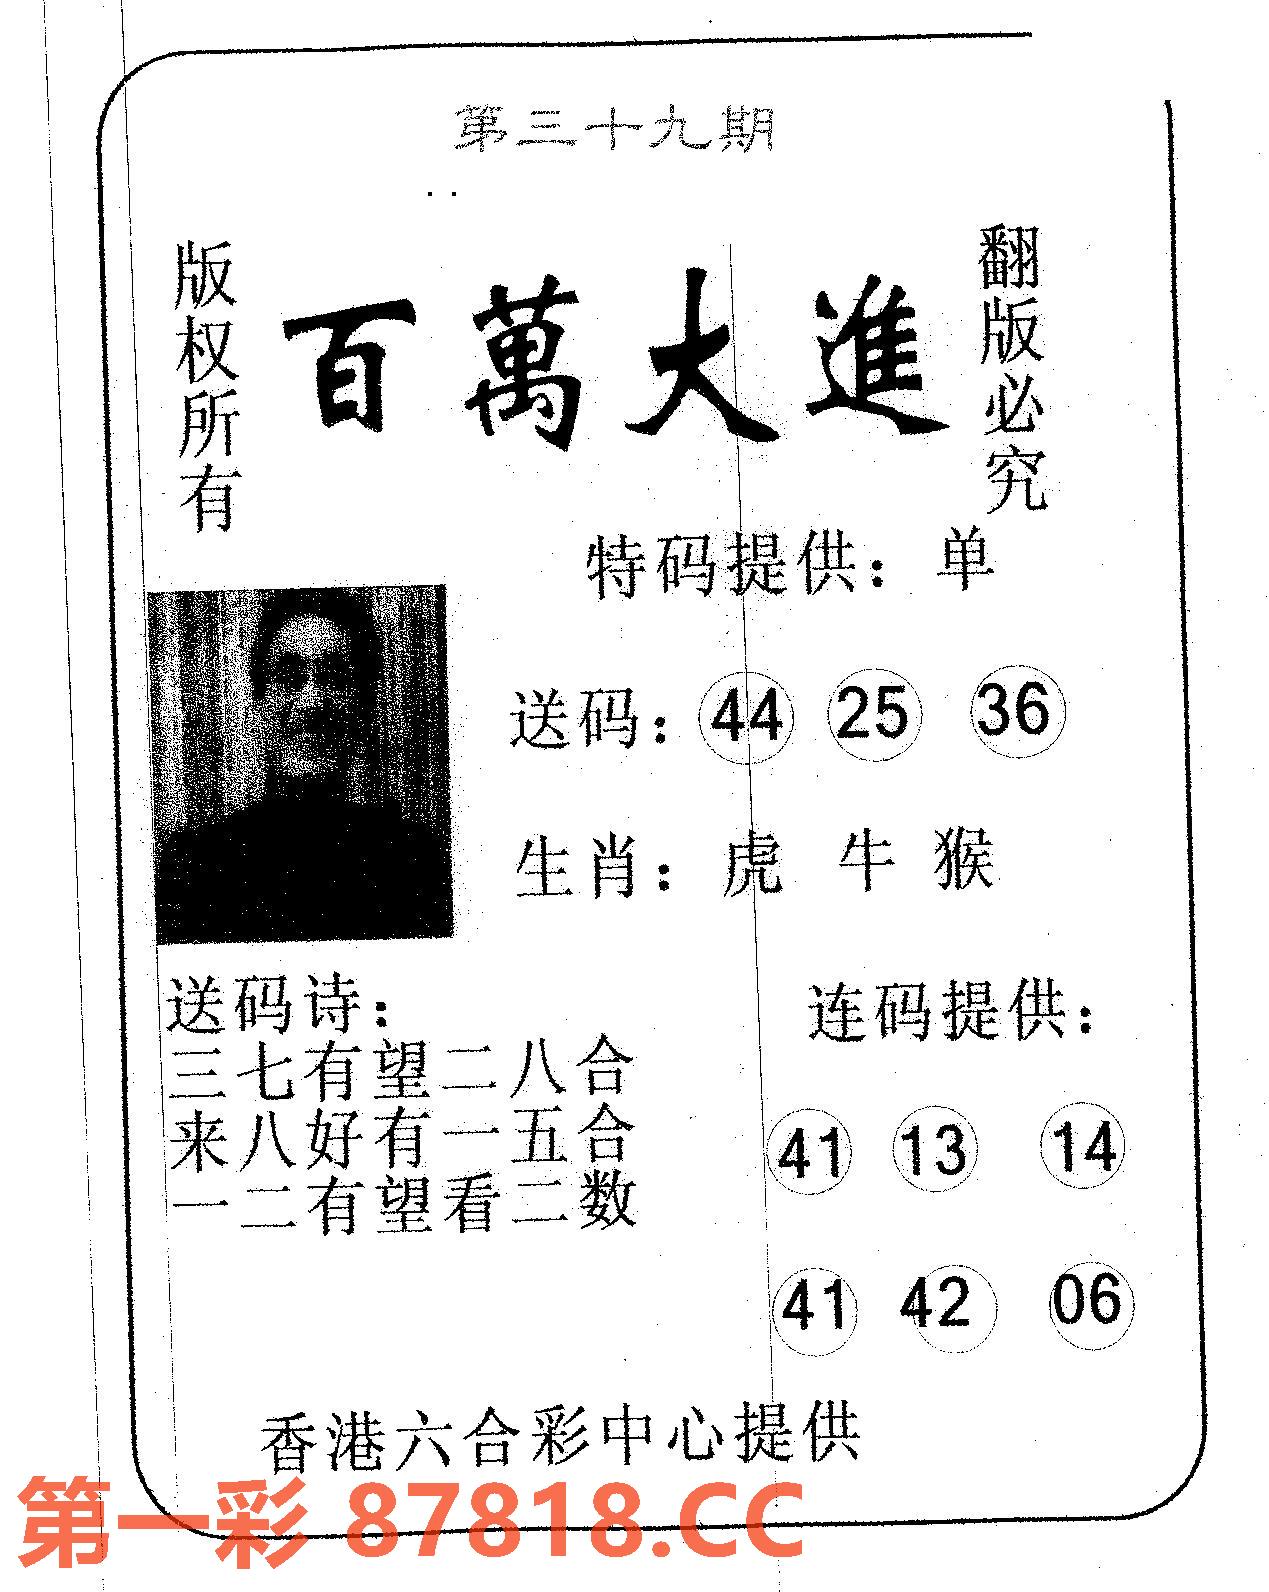 第三十九期
版权所有
百萬大進
翻版必究
特码提供：单
送码：44 25 36
生肖：虎 牛 猴
送码诗：
三七有望二八合
来八好有一五合
一二有望看二数
连码提供：
41 13 14
41 42 06
香港六合彩中心提供
第一彩 87818.CC